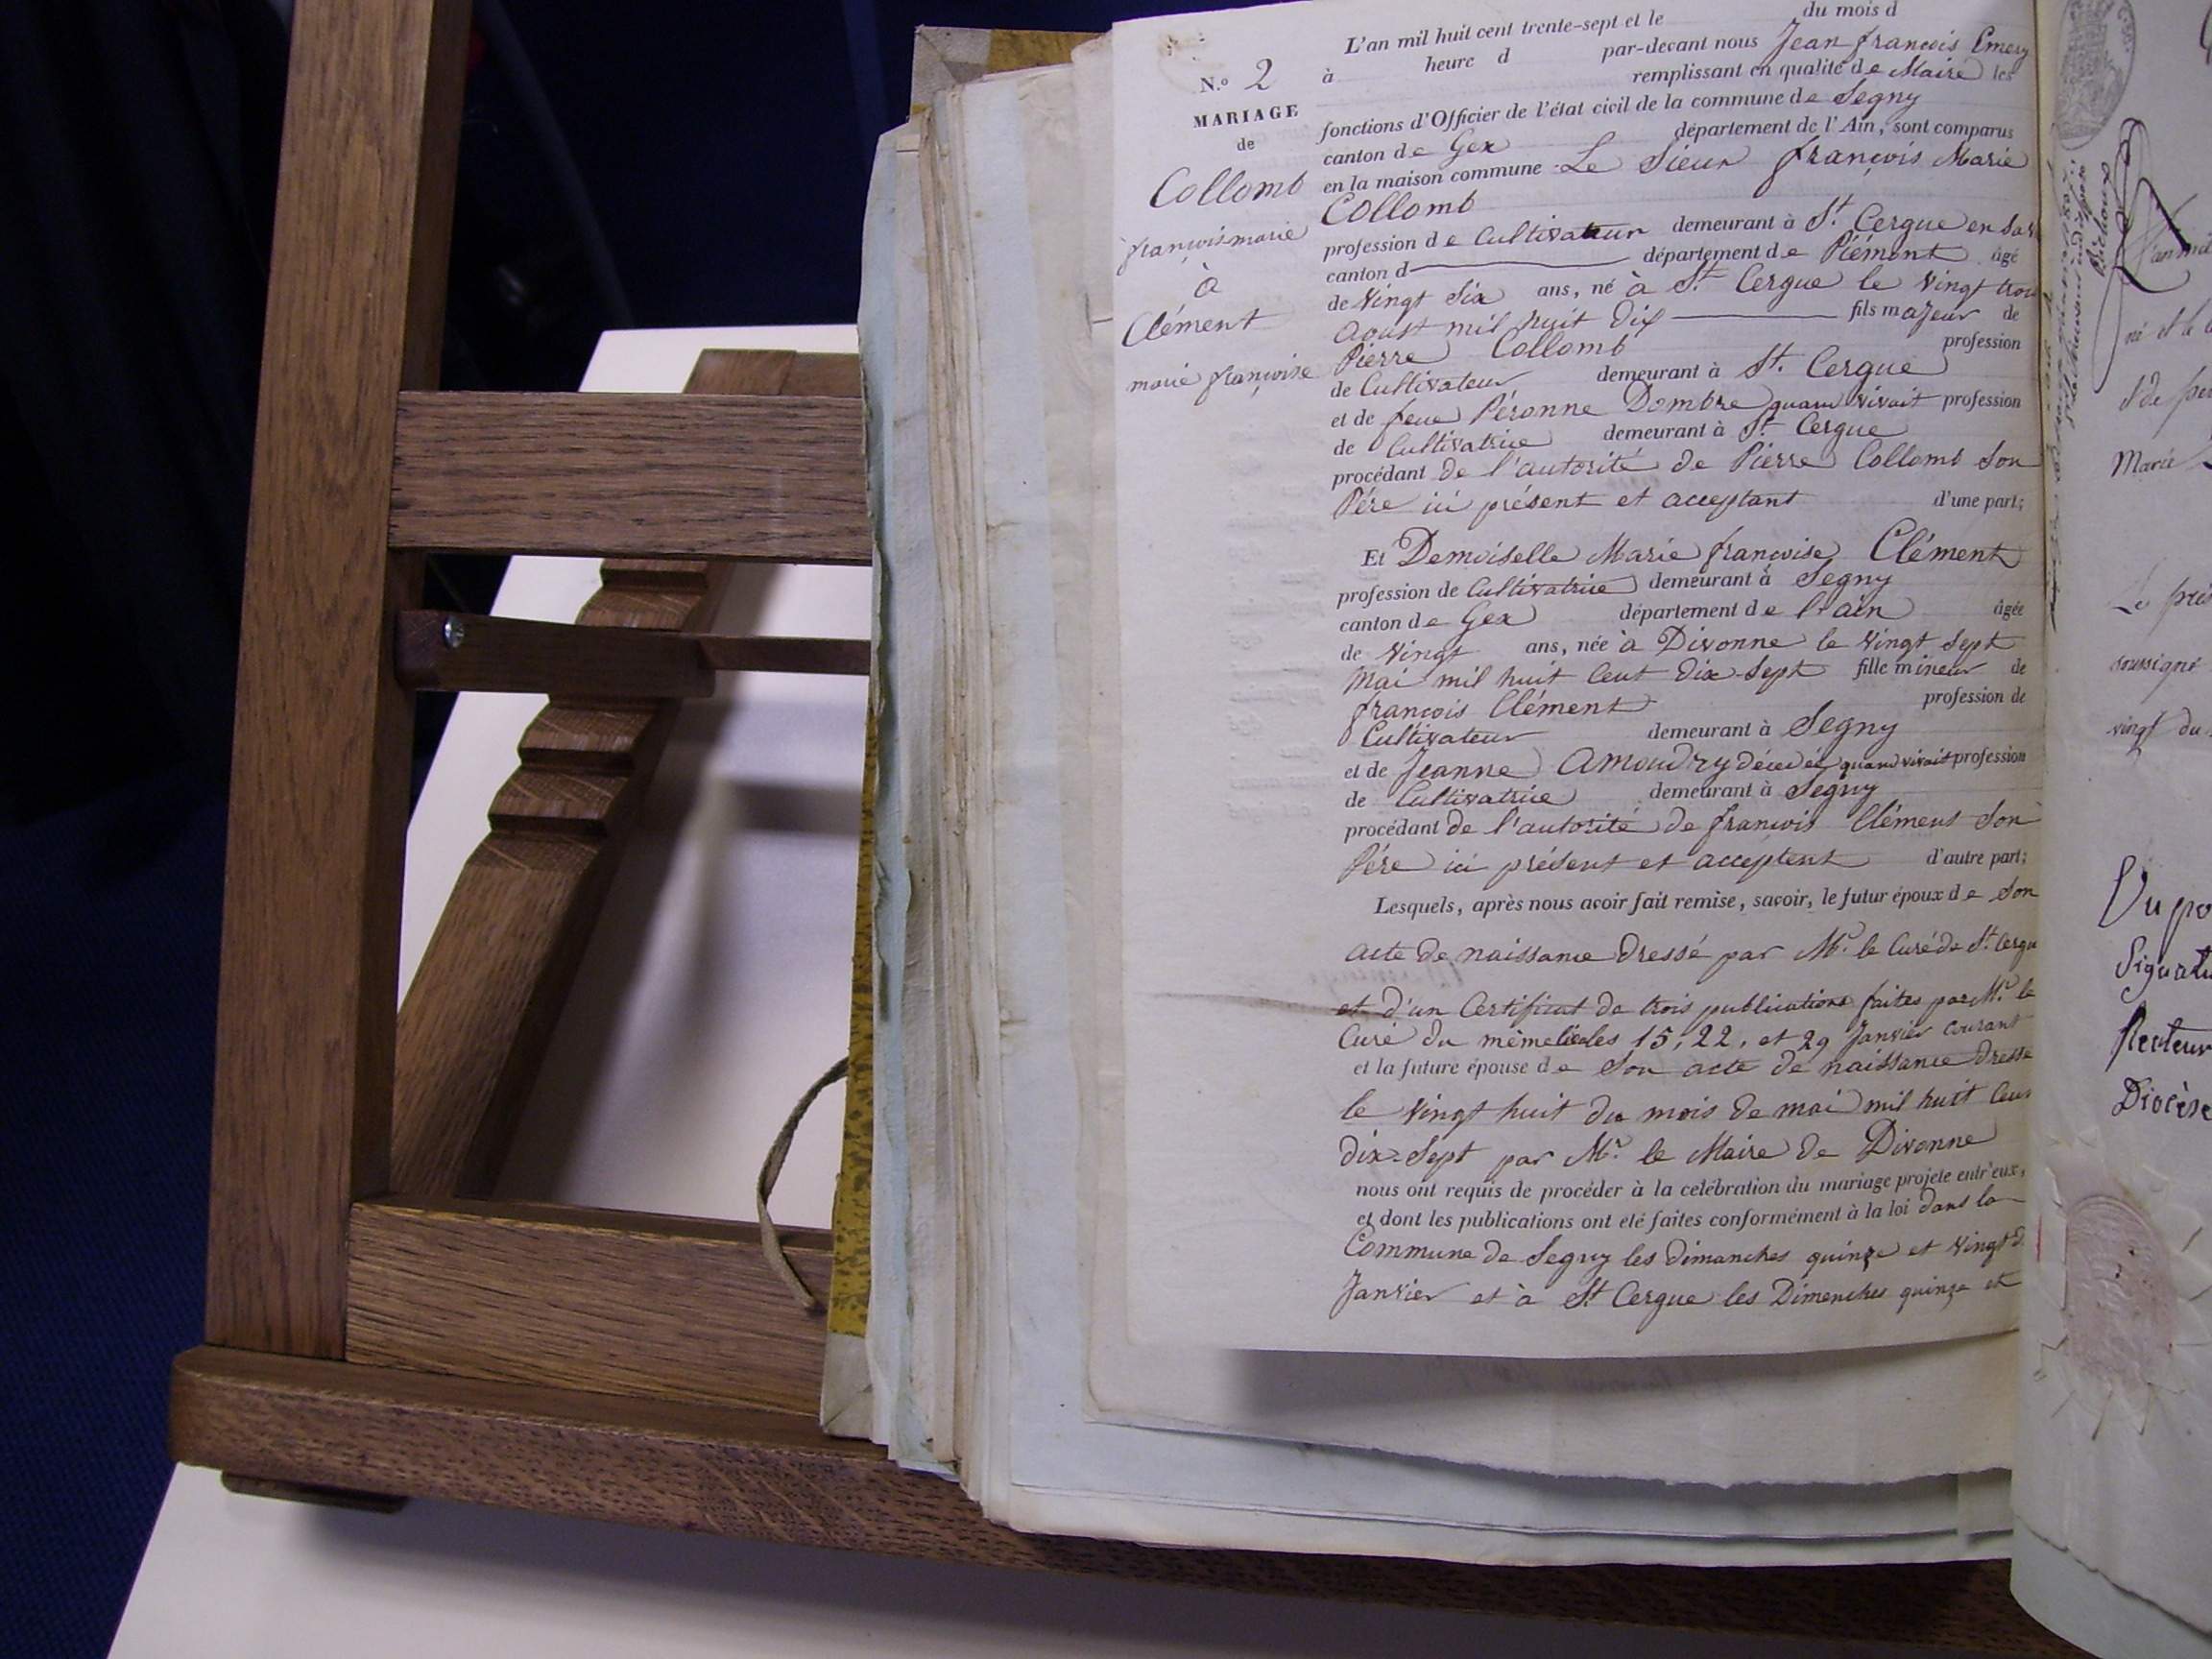 N.º 2
MARIAGE
de
Collomb
françois marie
à
Clément
marie françoise
L'an mil huit cent trente-sept et le du mois d
à heure d par-devant nous Jean françois Emery
remplissant en qualité de Maire les
fonctions d'Officier de l'état civil de la commune de Segny
canton de Gex département de l'Ain, sont comparus
en la maison commune Le Sieur françois Marie
Collomb
profession de Cultivateur demeurant à St. Cergue en
canton d département de Piémont âgé
de Vingt Six ans, né à St. Cergue le Vingt trois
Aoust mil huit Dix fils majeur de
Pierre Collomb profession
de Cultivateur demeurant à St. Cergue
et de feue Péronne Dombre quand vivait profession
de Cultivatrice demeurant à St. Cergue
procédant de l'autorité de Pierre Collomb Son
Pére ici présent et acceptant d'une part;
Et Demoiselle Marie françoise Clément
profession de Cultivatrice demeurant à Segny
canton de Gex département de l'ain âgée
de Vingt ans, née à Divonne le Vingt Sept
Mai mil huit Cent Dix-Sept fille mineur de
françois Clément profession de
Cultivateur demeurant à Segny
et de Jeanne Amoudry décédée quand vivait profession
de Cultivatrice demeurant à Segny
procédant de l'autorité de françois Clément Son
Pére ici présent et acceptent d'autre part;
Lesquels, après nous avoir fait remise, savoir, le futur époux de Son
acte de naissance Dressé par Mr. le Curé de St. Cergue
et d'un Certificat de trois publications faites par Mr. le
Curé du même lieu les 15, 22, et 29 Janvier courant
et la future épouse de Son acte de naissance Dressé
le Vingt huit du mois de mai mil huit Cent
dix-Sept par Mr. le Maire de Divonne
nous ont requis de procéder à la célébration du mariage projeté entr'eux,
et dont les publications ont été faites conformément à la loi Dans la
Commune de Segny les Dimanches quinze et Vingt
Janvier et à St Cergue les Dimenches quinze et
né et le
Marie
soussigné
vingt du
Vu po
Signatu
Recteur
Diocèse